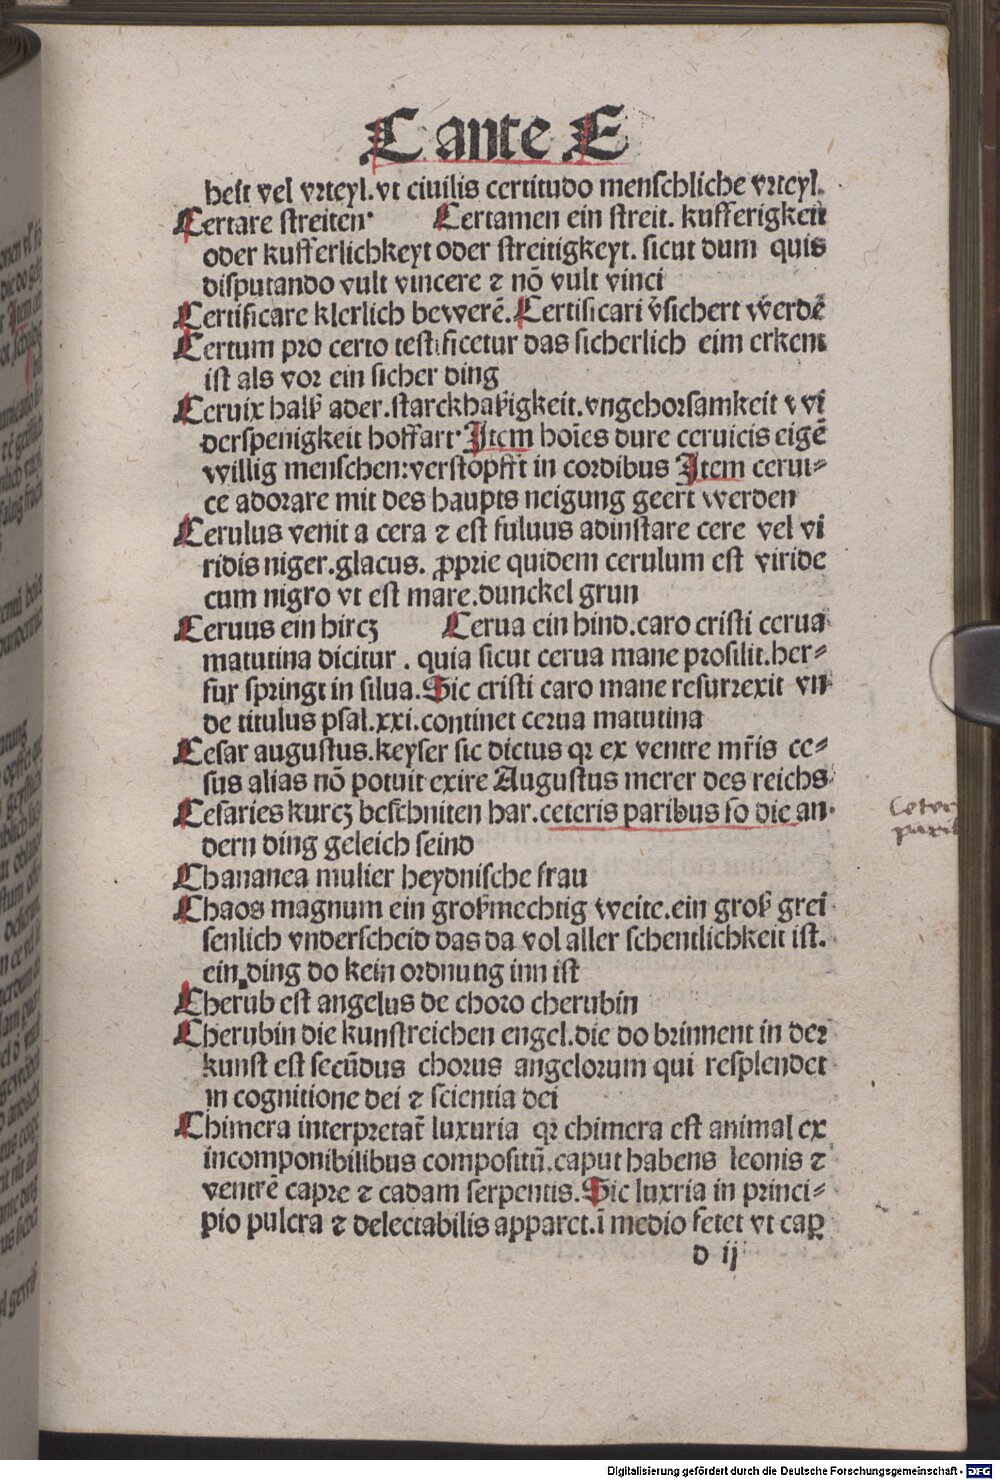 C ante E
heit vel vrteyl.vt ciuilis certitudo menschliche vrteyl.
Certare streiten· Certamen ein streit. kufferigkeit
oder kufferlichkeyt oder streitigkeyt. sicut dum quis
disputando vult vincere ⁊ nō vult vinci
Certificare klerlich bewerē. Certificari v̄sichert werdē
Certum pro certo testificetur das sicherlich eim erkent
ist als vor ein sicher ding
Ceruix halß ader.starckhaßigkeit.vngehorsamkeit v vi
derspenigkeit hoffart· Item hoīes dure ceruicis eigē
willig menschen:verstopfft in cordibus Item cerui⸗
ce adorare mit des haupts neigung geert werden
Cerulus venit a cera ⁊ est fuluus adinstare cere vel vi
ridis niger.glacus. ꝓprie quidem cerulum est viride
cum nigro vt est mare.dunckel grun
Ceruus ein hircz Cerua ein hind.caro cristi cerua
matutina dicitur . quia sicut cerua mane prosilit.her⸗
fur springt in silua.Sic cristi caro mane resurrexit vn
de titulus psal.xxi.continet cerua matutina
Cesar augustus.keyser sic dictus qr ex ventre mr̄is ce⸗
sus alias nō potuit exire Augustus merer des reichs
Cesaries kurcz beschniten har.ceteris paribus so die an
dern ding geleich seind
Ceter
parib
Chananea mulier heydnische frau
Chaos magnum ein großmechtig weite.ein groß grei
senlich vnderscheid das da vol aller schentlichkeit ist.
ein ding do kein ordnung inn ist
Cherub est angelus de choro cherubin
Cherubin die kunstreichen engel.die do brinnent in der
kunst est secūdus chorus angelorum qui resplendet
in cognitione dei ⁊ scientia dei
Chimera interpretat̄ luxuria qr chimera est animal ex
incomponibilibus compositū.caput habens leonis ⁊
ventrē capre ⁊ cadam serpentis.Sic luxria in princi⸗
pio pulcra ⁊ delectabilis apparet.ī medio fetet vt capꝛ
d ij
Digitalisierung gefördert durch die Deutsche Forschungsgemeinschaft - DFG